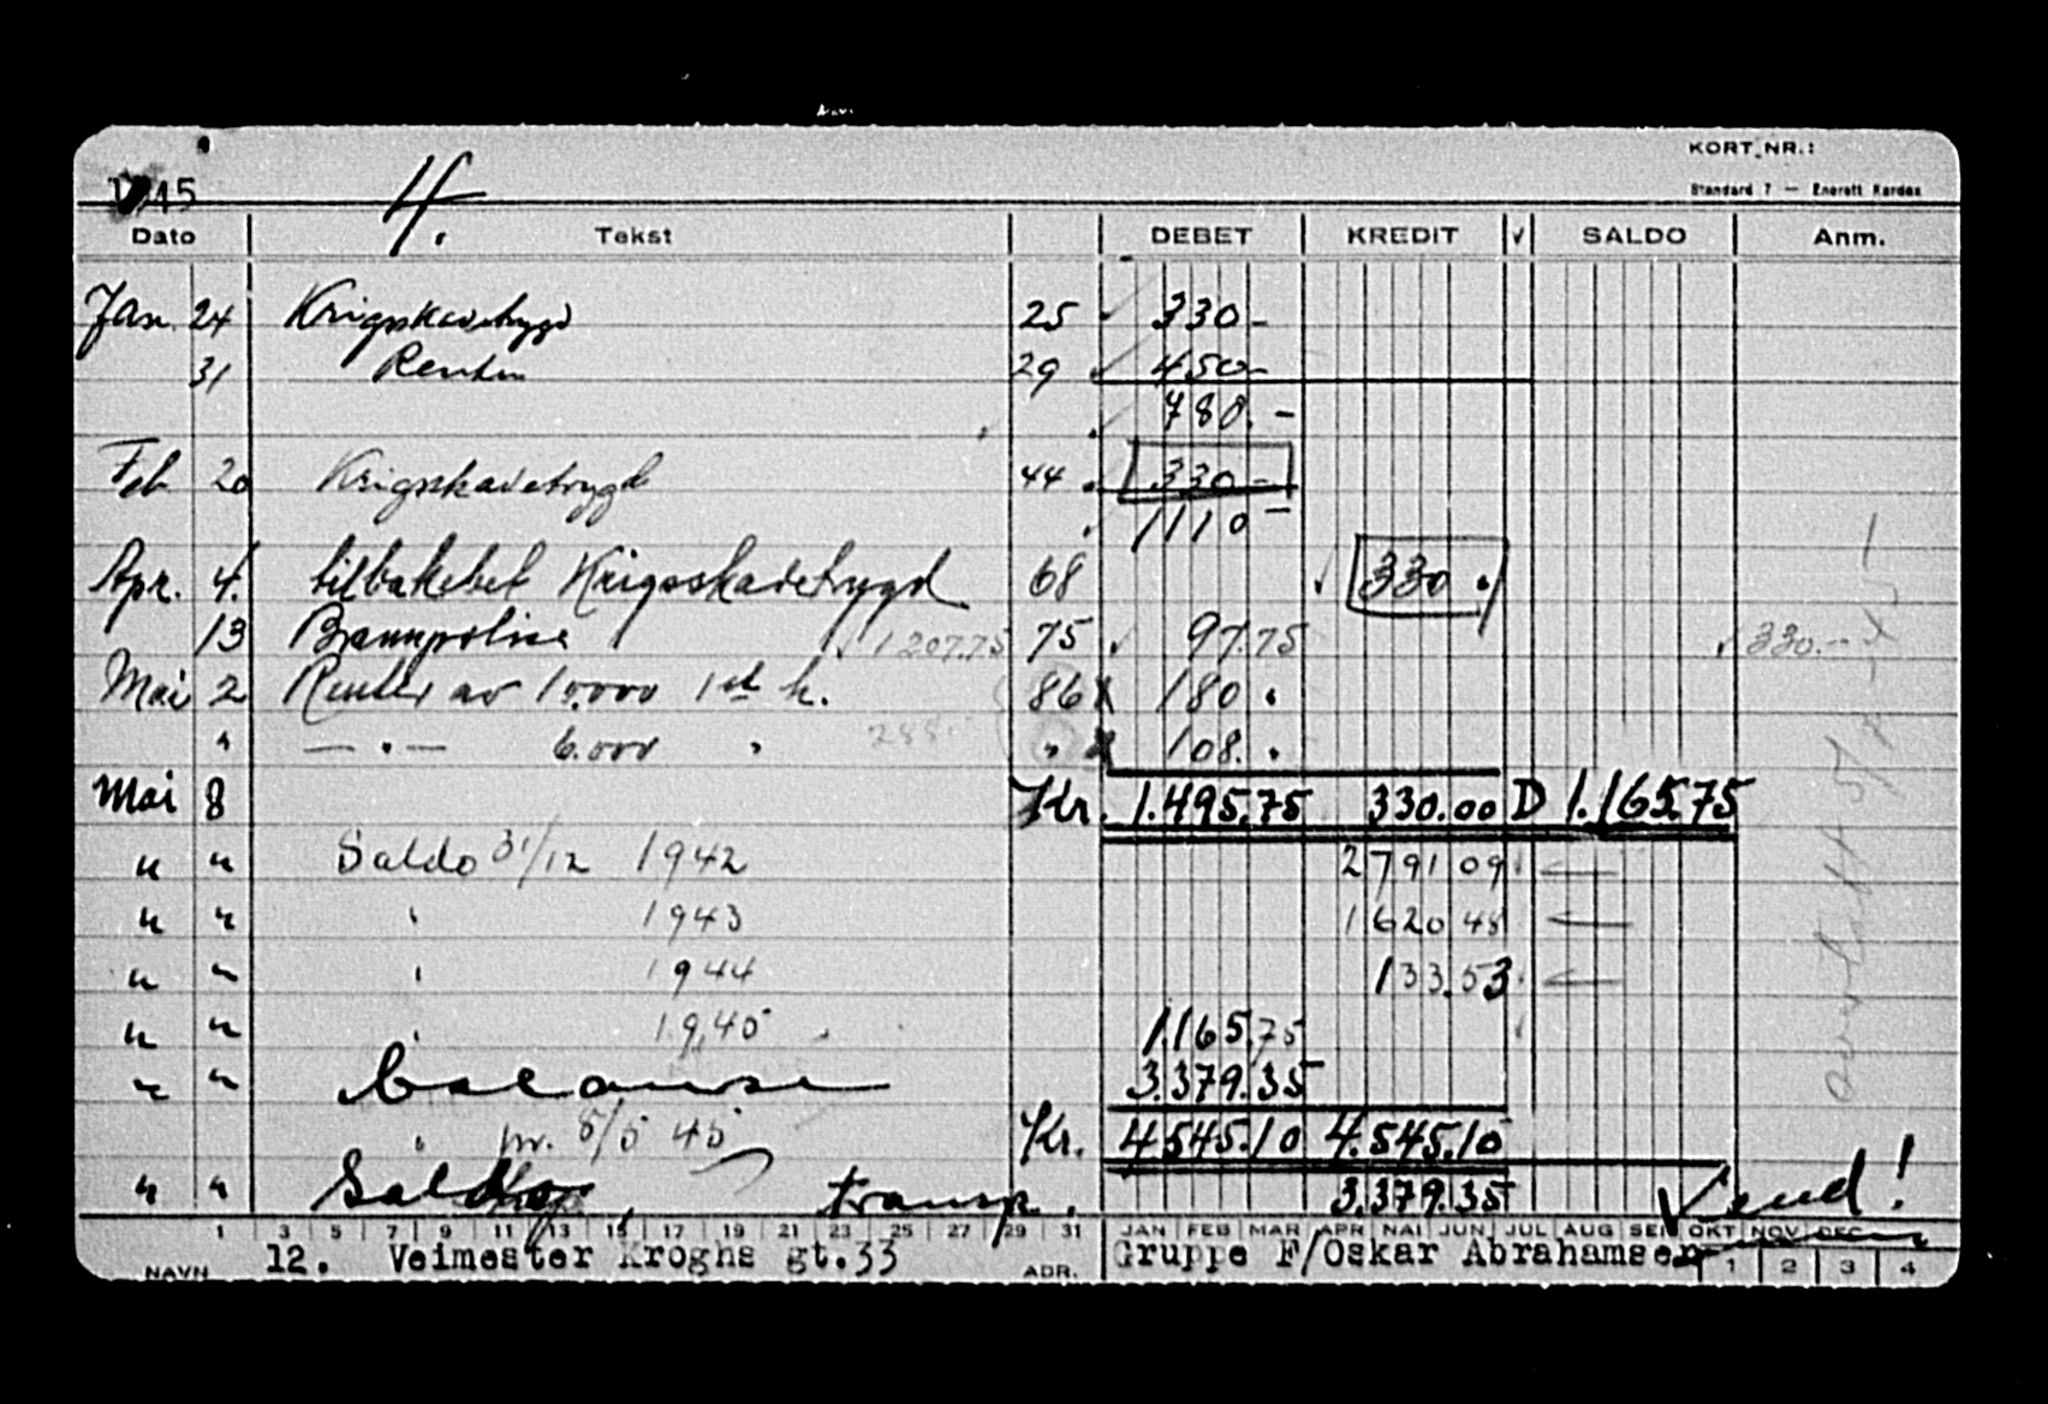 KORT NR.:
45 4. Standard 7 — Enerett Kardex
Dato Tekst DEBET KREDIT √ SALDO Anm.
Jan. 24 Krigsskadetrygd 25 330-
31 Renter 29 450-
780.-
Feb 20 Krigsskadetrygd 44 330-
1110-
Apr. 4. tilbakebet Krigsskadetrygd 68 330.
13 Brannpolise 1207.75 75 97.75 330.-
Mai 2 Renter av 10.000 1ste h. 86 180 "
" — " — 6.000 " 288.- " 108. "
Mai 8 Kr. 1.495.75 330.00 D 1.165.75
" " Saldo 31/12 1942 2791 09
" " " 1943 1620 48
" " " 1944 133.53
" " " 1945 1.165.75
" " balanse 3.379.35
" pr. 8/5 45 Kr. 4545.10 4.545.10
" " Saldo, transp. 3.379.35 Vend!
1 3 5 7 9 11 13 15 17 19 21 23 25 27 29 31 JAN FEB MAR APR MAI JUN JUL AUG SEP OKT NOV DEC
NAVN 12. Veimester Kroghs gt.33 ADR. Gruppe F/Oskar Abrahamsen 1 2 3 4